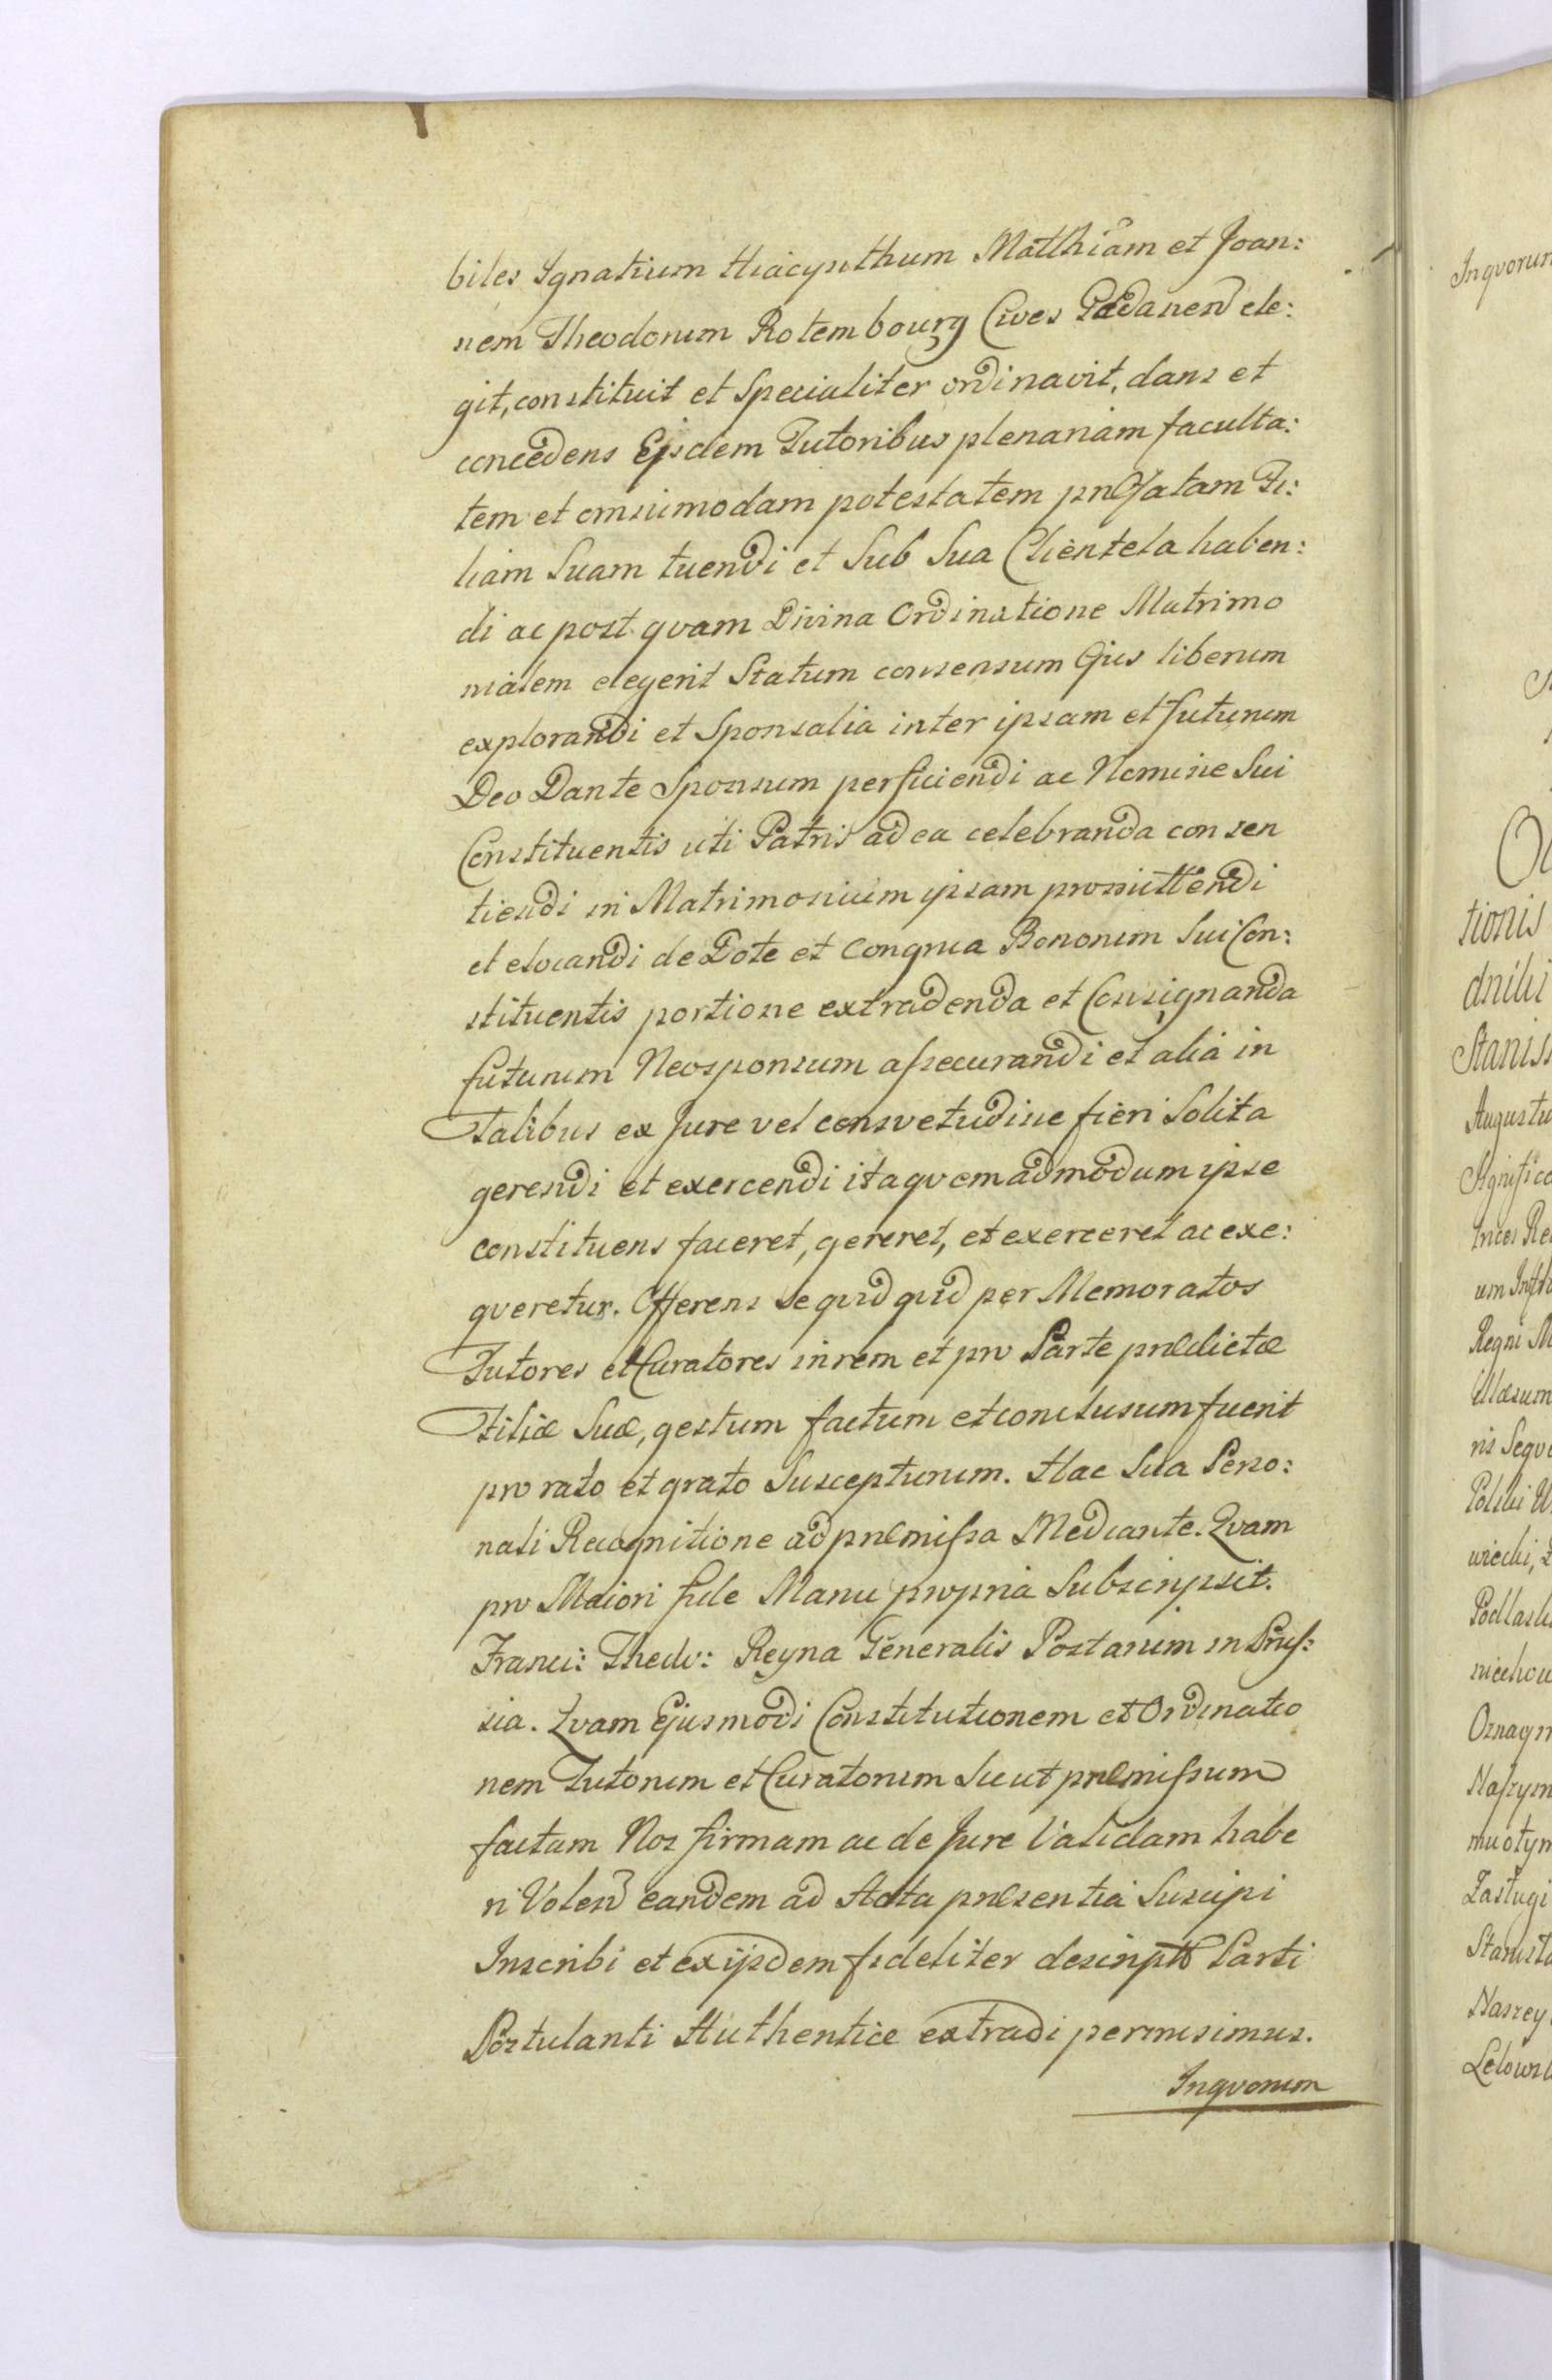 biles Ignatium Hiacynthum Matthiam et Joan:
nem Theodorum Rotembourg Cives Gedanen ele:
git, constituit et Specialiter ordinavit, dans et
concedens Eisdem Tutoribus plenariam faculta:
tem et omnimodam potestatem præfatam Fi:
liam Suam tuendi et Sub Sua Clientela haben:
di ac post qvam Divina Ordinatione Matrimo
nialem elegerit Statum consensum Ejus liberum
explorandi et Sponsalia inter ipsam et futurum
Deo Dante Sponsum perficiendi ac Nomine Sui
Constituentis uti Patris ad ea celebranda consen
tiendi in Matrimonium ipsam promittendi
et elocandi de Dote et Congrua Bonorum Sui Con:
stituentis portione extradenda et Consignanda
futurum Neosponsum assecurandi et alia in
Talibus ex Jure vel consvetudine fieri Solita
gerendi et exercendi ita qvemadmodum ipse
constituens faceret, gereret, et exerceret ac exe:
qveretur. Offerens se qvidqvid per Memoratos
Tutores et Curatores in rem et pro Parte prædictæ
Filiæ Suæ, gestum factum et conclusum fuerit
pro rato et grato Suscepturum. Hac Sua Perso:
nali Recognitione ad præmissa Mediante. Qvam
pro Maiori fide Manu propria Subscripsit.
Franci: Thedo: Reyna Generalis Postarum in Prus:
sia. Qvam Ejusmodi Constitutionem et Ordinatio
nem Tutorum et Curatorum Sicut præmissum
factam Nos firmam ac de Jure Validam habe
ri Volen eandem ad Acta præsentia Suscipi
Inscribi et ex ijsdem fideliter descriptã Parti
Postulanti Authentice extradi permisimus.
Inqvorum
Inqvorum
tionis
Stanis
Augustu
Regni M